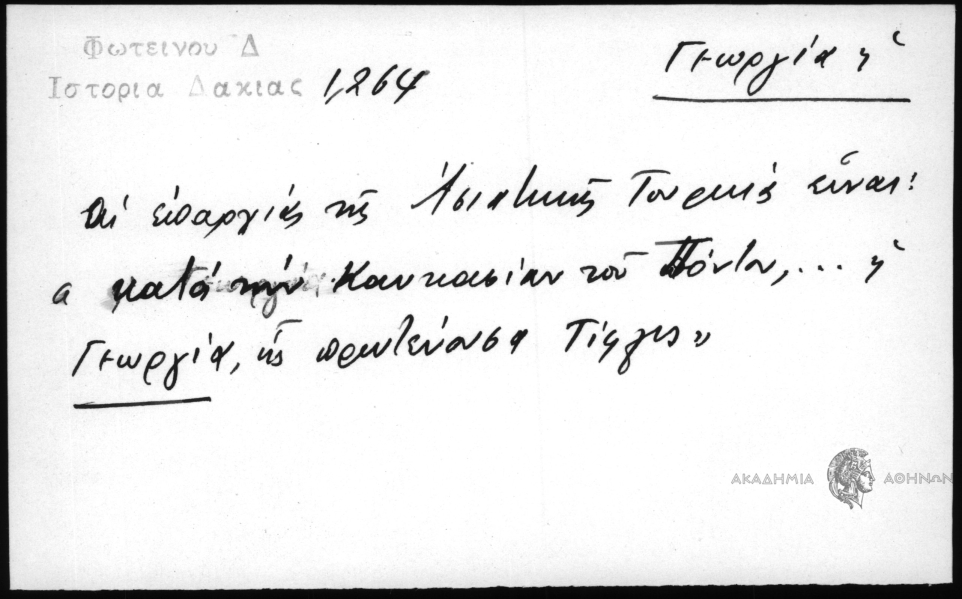 Φωτεινου Δ
Ιστορια Δακιας 1,264
Γεωργία ἡ
Αἱ ἐπαρχίαι τῆς Ἀσιατικῆς Τουρκίας εἶναι:
α κατά τήν Καυκασίαν τοῦ Πόντου, ... ἡ
Γεωργία, ἧς πρωτεύουσα Τίφλις »
ΑΚΑΔΗΜΙΑ ΑΘΗΝΩΝ